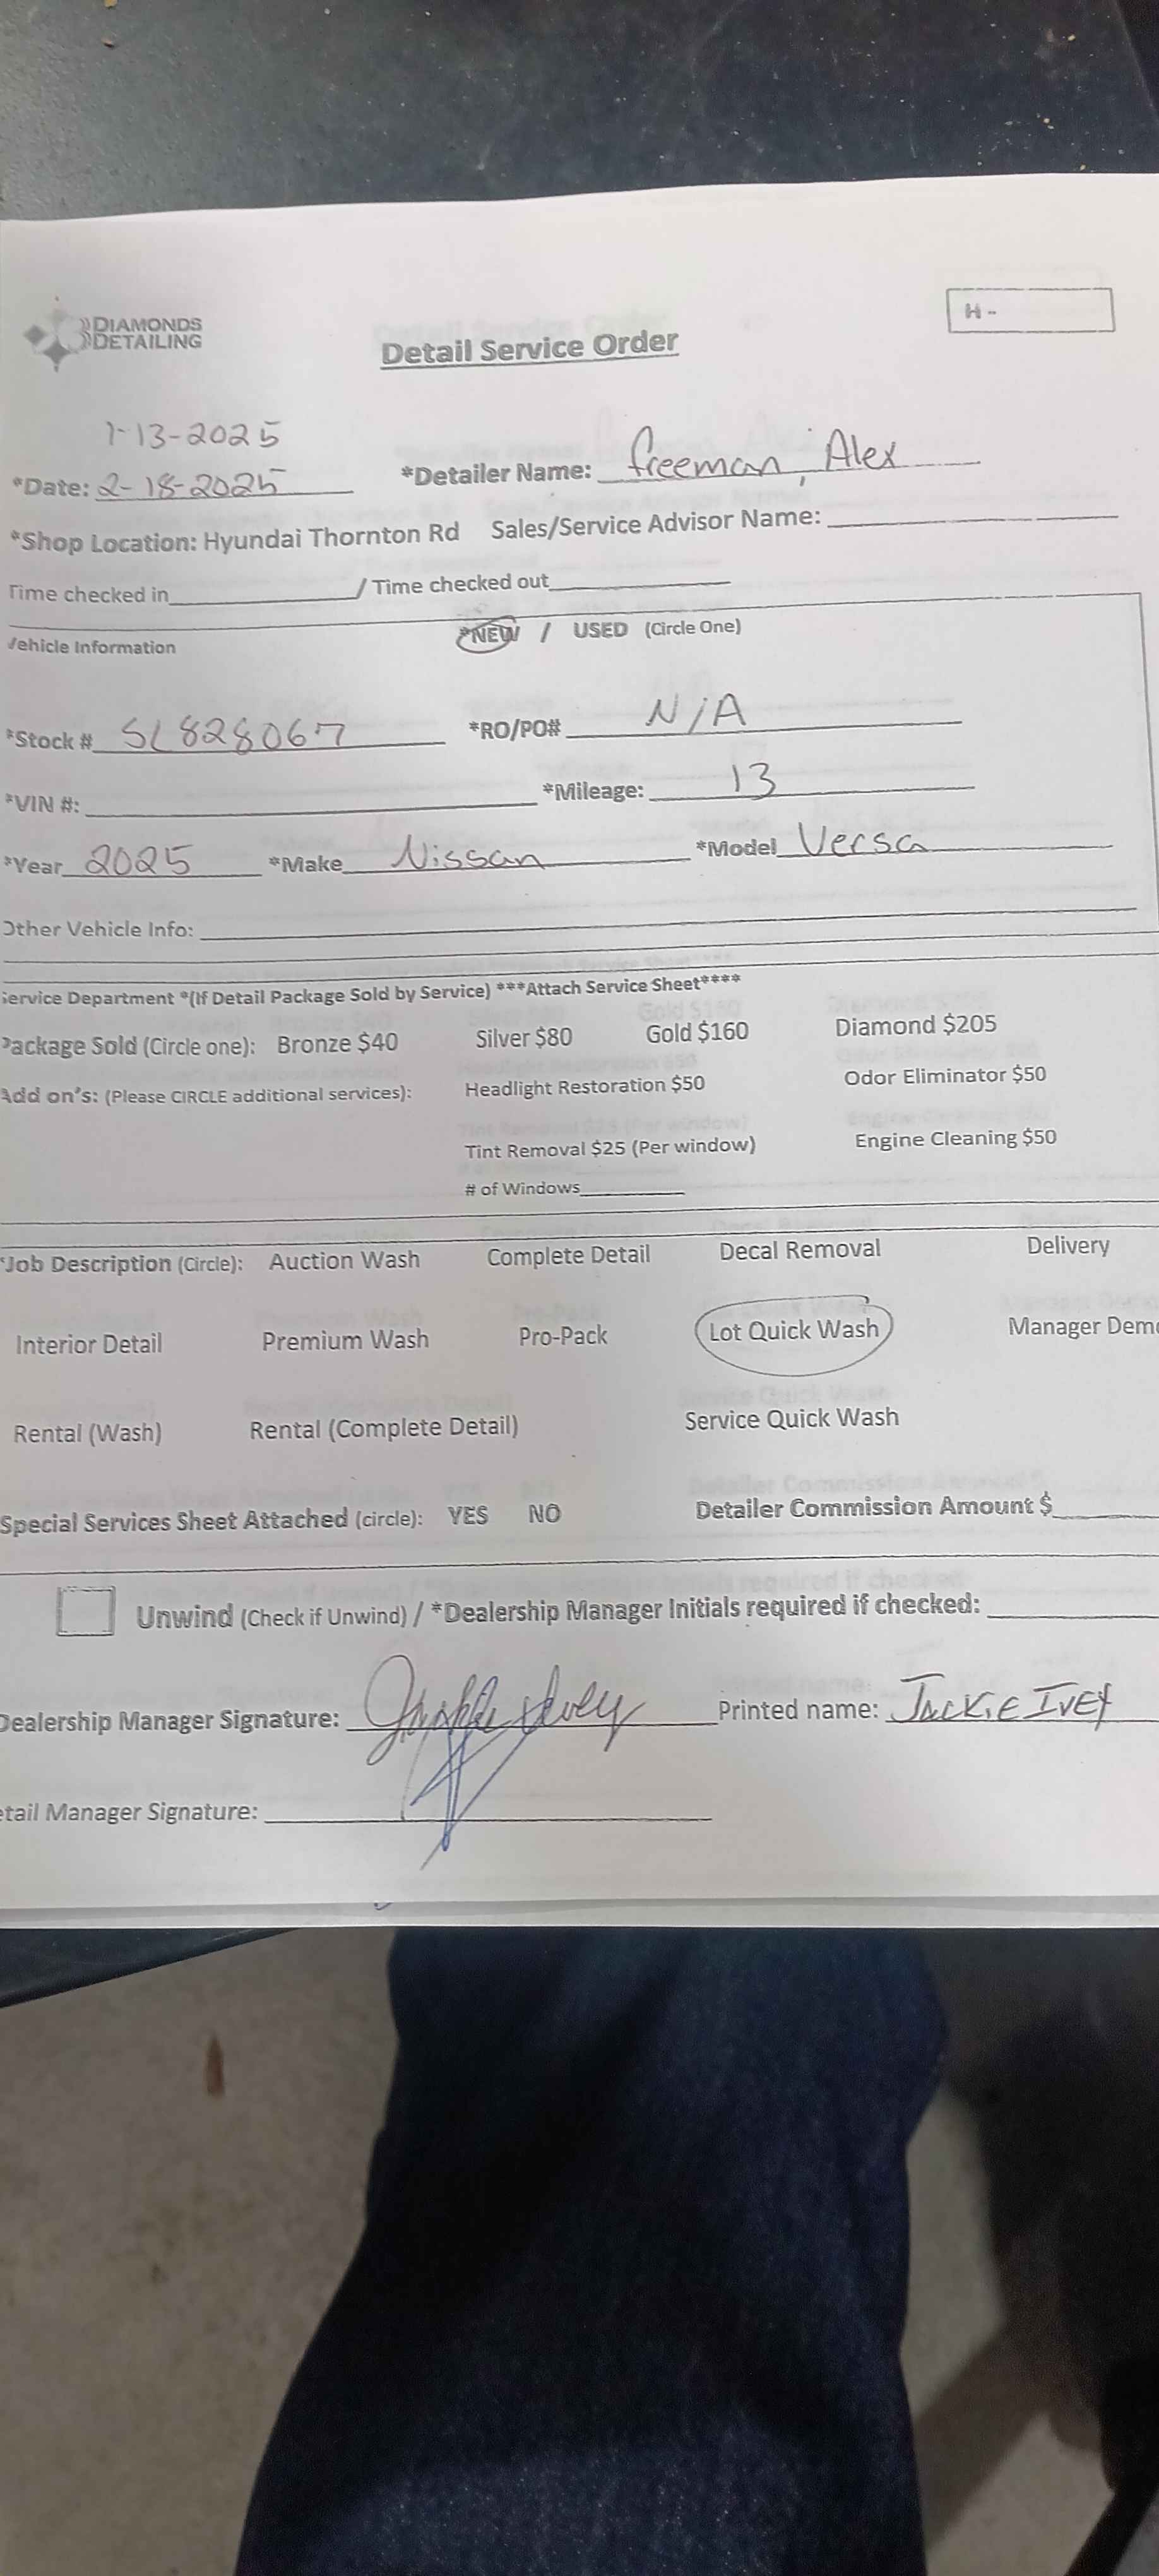 DIAMONDS
DETAILING
H -
Detail Service Order
1-13-2025
*Date: 2-18-2025 *Detailer Name: freeman, Alex
*Shop Location: Hyundai Thornton Rd Sales/Service Advisor Name:
Time checked in / Time checked out
Vehicle Information *NEW / USED (Circle One)
*Stock # SL828067 *RO/PO# N/A
*VIN #: *Mileage: 13
*Year 2025 *Make Nissan *Model Versa
Other Vehicle Info:
Service Department *(If Detail Package Sold by Service) ***Attach Service Sheet****
Package Sold (Circle one): Bronze $40 Silver $80 Gold $160 Diamond $205
Add on's: (Please CIRCLE additional services): Headlight Restoration $50 Odor Eliminator $50
Tint Removal $25 (Per window) Engine Cleaning $50
# of Windows
*Job Description (Circle): Auction Wash Complete Detail Decal Removal Delivery
Interior Detail Premium Wash Pro-Pack Lot Quick Wash Manager Dem
Rental (Wash) Rental (Complete Detail) Service Quick Wash
Special Services Sheet Attached (circle): YES NO Detailer Commission Amount $
Unwind (Check if Unwind) / *Dealership Manager Initials required if checked:
Dealership Manager Signature: Printed name: JACKIE IVEY
etail Manager Signature: